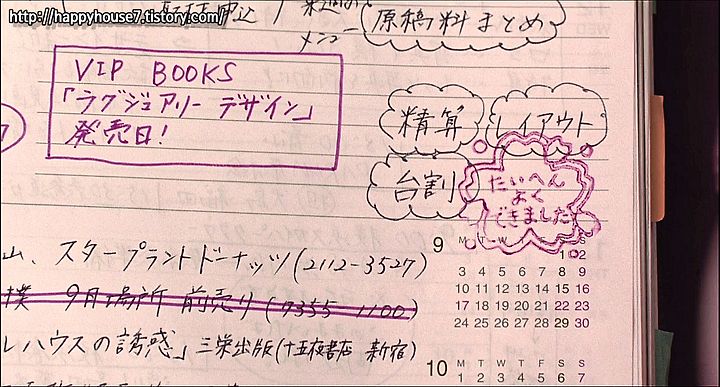 http://happyhouse7.tistory.com/
メニュー
原稿料まとめ
VIP BOOKS
「ラグジュアリー デザイン」
発売日!
精算
レイアウト
台割
たいへん
よく
できました
山、スタープラントドーナッツ(2112-3527)
撲 9月場所 前売り(9355 1100)
レハウスの誘惑」三栄出版(十五夜書店 新宿)
9 M T W T F S S
1 2
3 4 5 6 7 8 9
10 11 12 13 14 15 16
17 18 19 20 21 22 23
24 25 26 27 28 29 30
10 M T W T F S S
1 2 3 4 5 6 7